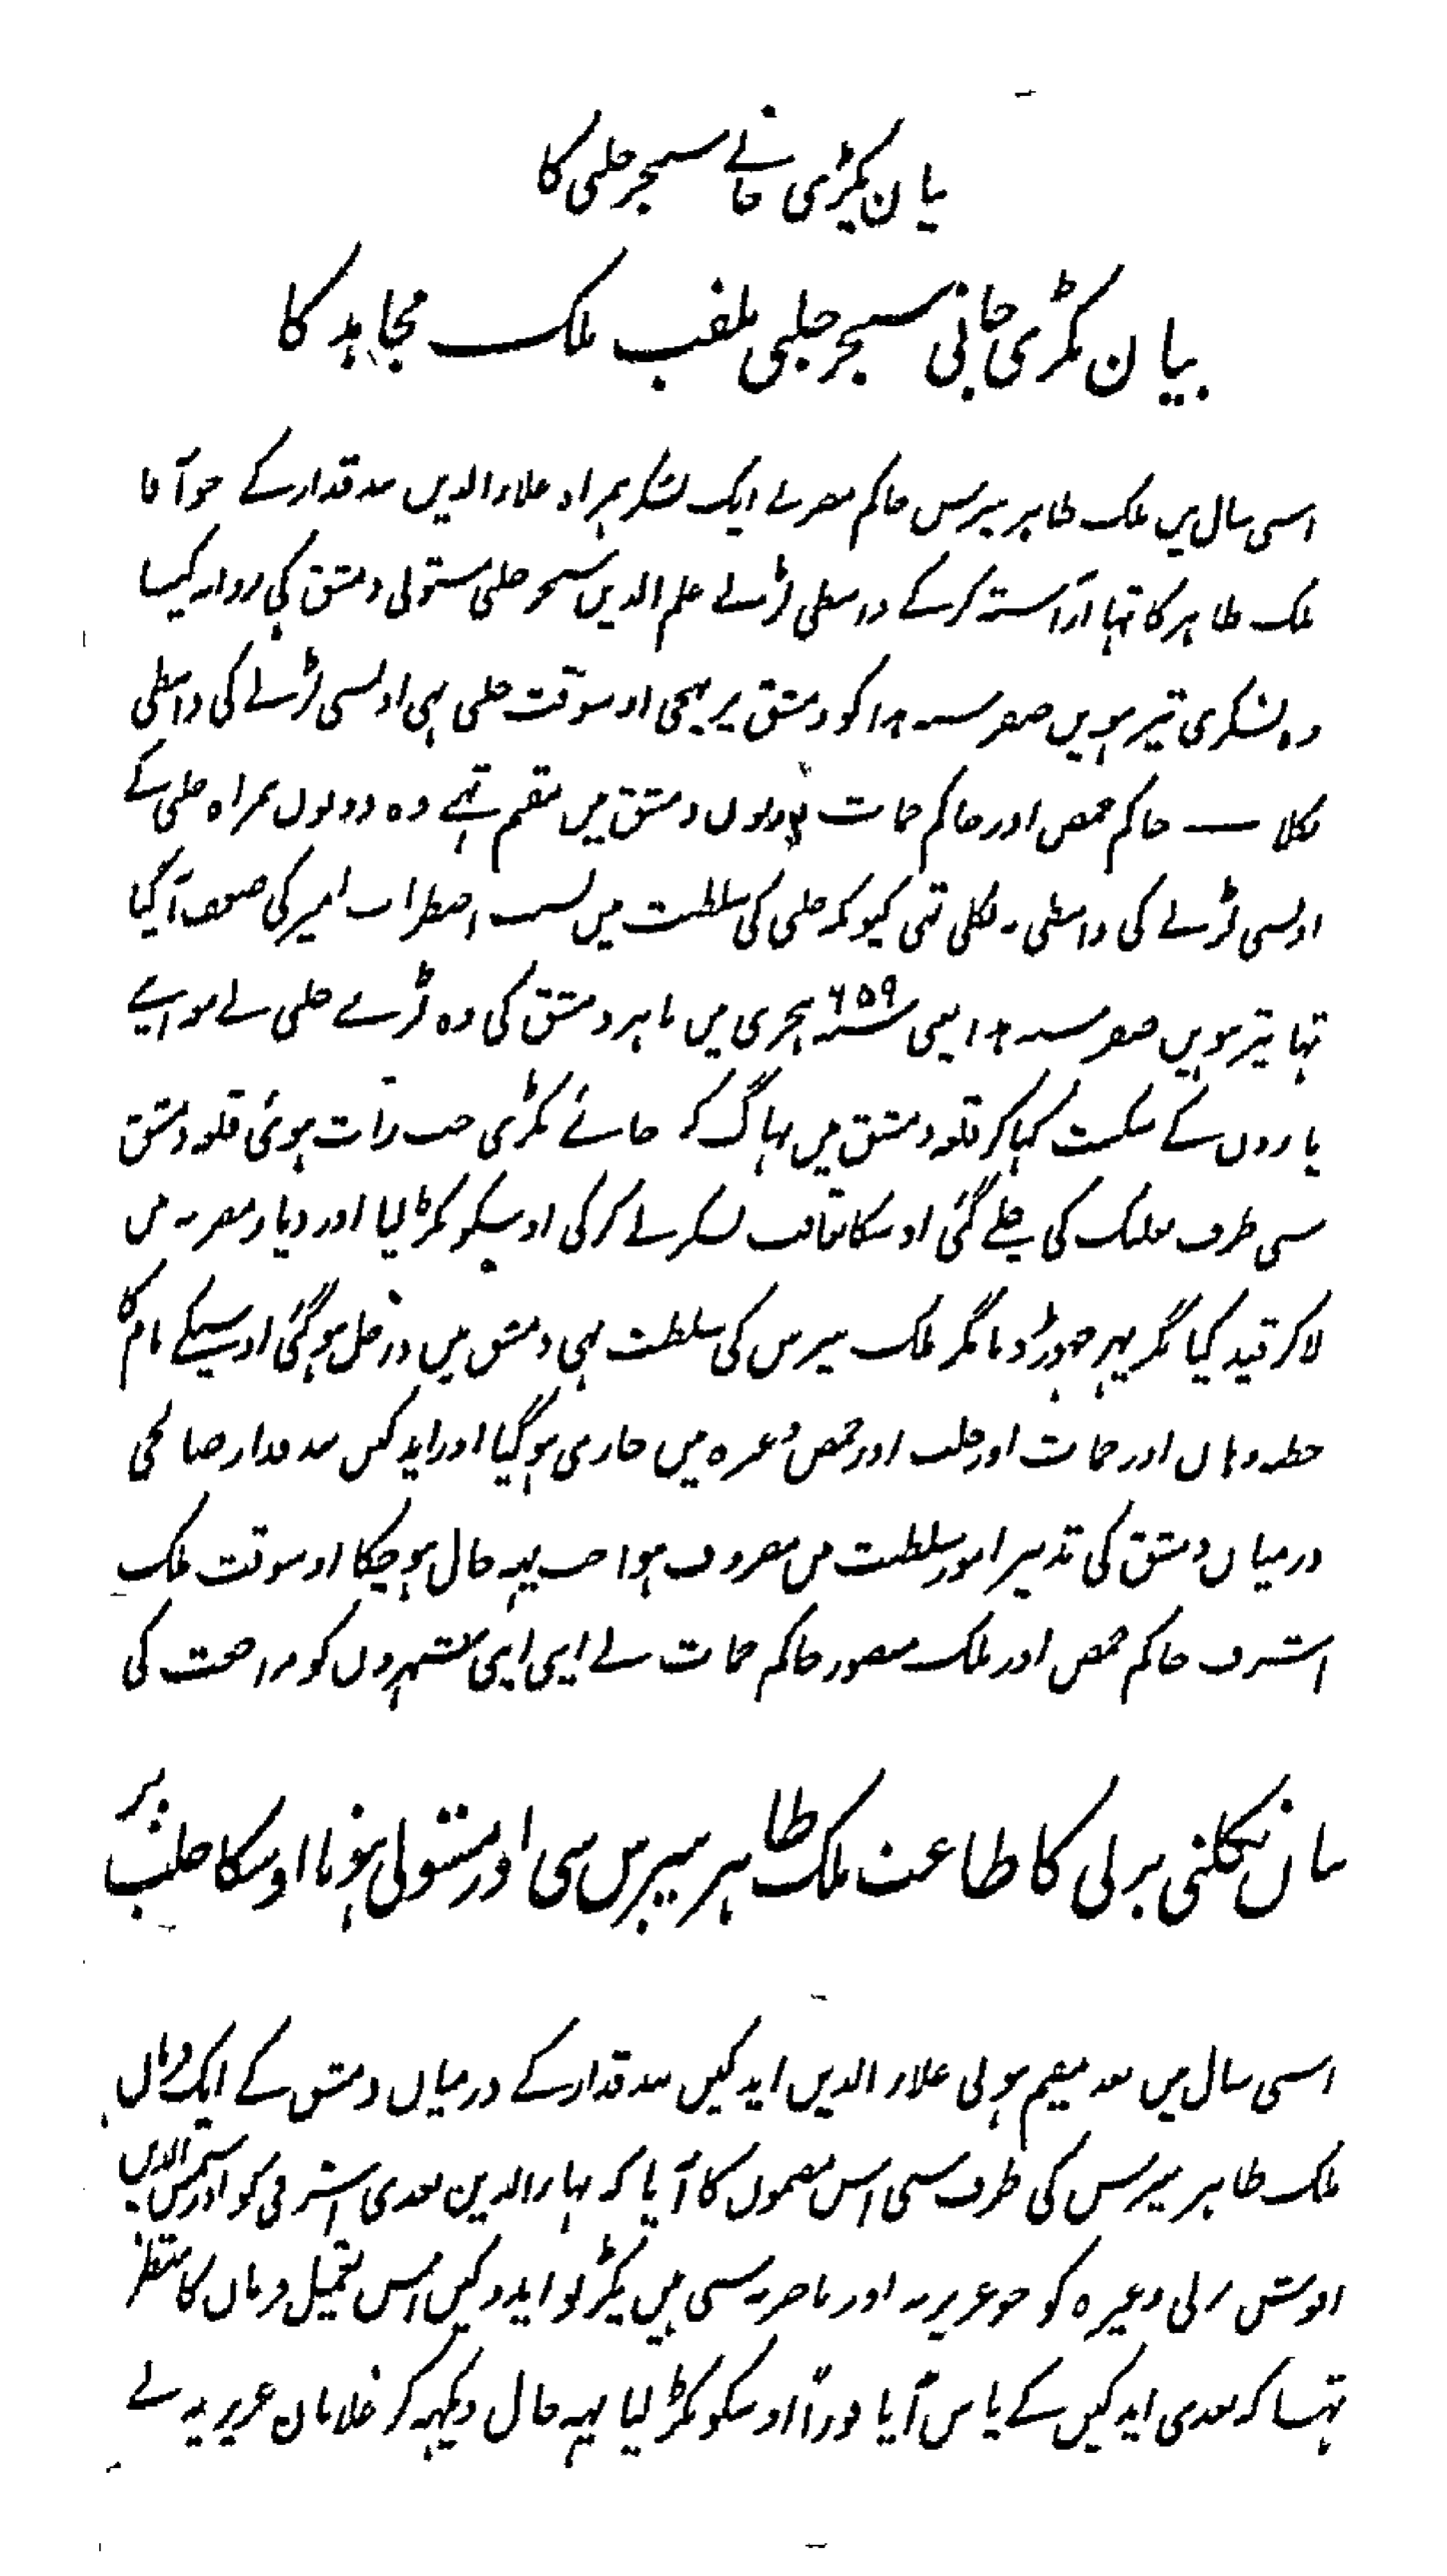 بیان پکڑی جانے سنجر حلبی کا
بیان پکڑی جانی سنجر حلبی ملقب ملک مجاہد کا
اسی سال میں ملک ظاہر بیبرس حاکم مصر نے ایک لشکر ہمراہ علاء الدین بندقدار کے جو آقا
ملک ظاہر کا تہا آراستہ کرکے واسطی لڑنے علم الدین سنجر حلبی مستولی دمشق کی روانہ کیا
وہ لشکری تیرہویں صفر سنہ کو دمشق پر پہنچی اوسوقت حلبی بہی اونسی لڑنے کی واسطی
نکلا — حاکم حمص اور حاکم حمات دونوں دمشق میں مقیم تہے وہ دونوں ہمراہ حلبی کے
اونسی لڑنے کی واسطی نہ نکلی تہی کیونکہ حلبی کی سلطنت میں بسبب اضطراب امیر کی ضعف آگیا
تہا تیرہویں صفر سنہ یعنی سنہ ۶۵۹ ہجری میں باہر دمشق کی وہ لڑے حلبی نے معہ اپنے
یاروں کے شکست کہا کر قلعہ دمشق میں بہاگ کر جانے پکڑی جب رات ہوئی قلعہ دمشق
سی طرف بعلبک کی چلے گئی اوسکا تعاقب لشکر نے کرکی اوسیکو پکڑ لیا اور دیار مصریہ میں
لاکر قید کیا مگر پہر چہوڑ دیا مگر ملک بیبرس کی سلطنت بہی دمشق میں داخل ہوگئی اوسیکے نام کا
خطبہ وہاں اور حمات اور حلب اور حمص وغیرہ میں جاری ہوگیا اور ایدکین بندقدار صالحی
درمیان دمشق کی تدبیر امور سلطنت میں مصروف ہوا جب یہہ حال ہوچکا اوسوقت ملک
اشرف حاکم حمص اور ملک منصور حاکم حمات نے اپنی اپنی شہروں کو مراجعت کی
بیان نکلنی برلی کا طاعت ملک ظاہر بیبرس سی اور مستولی ہونا اوسکا حلب پر
اسی سال میں بعد مقیم ہونی علاء الدین ایدکین بندقدار کے درمیان دمشق کے ایک فرمان
ملک ظاہر بیبرس کی طرف سی اس مضمون کا آیا کہ بہاء الدین بعدی اشرفی کو اور شمس الدین
اقوش برلی وغیرہ کو جو عزیزیہ اور ناصریہ سی ہیں پکڑ لو ایدکین اس تعمیل فرمان کا منتظر
تہا کہ بعدی ایدکین کے پاس آیا فوراً اوسکو پکڑ لیا یہہ حال دیکہہ کر غلامان عزیزیہ نے